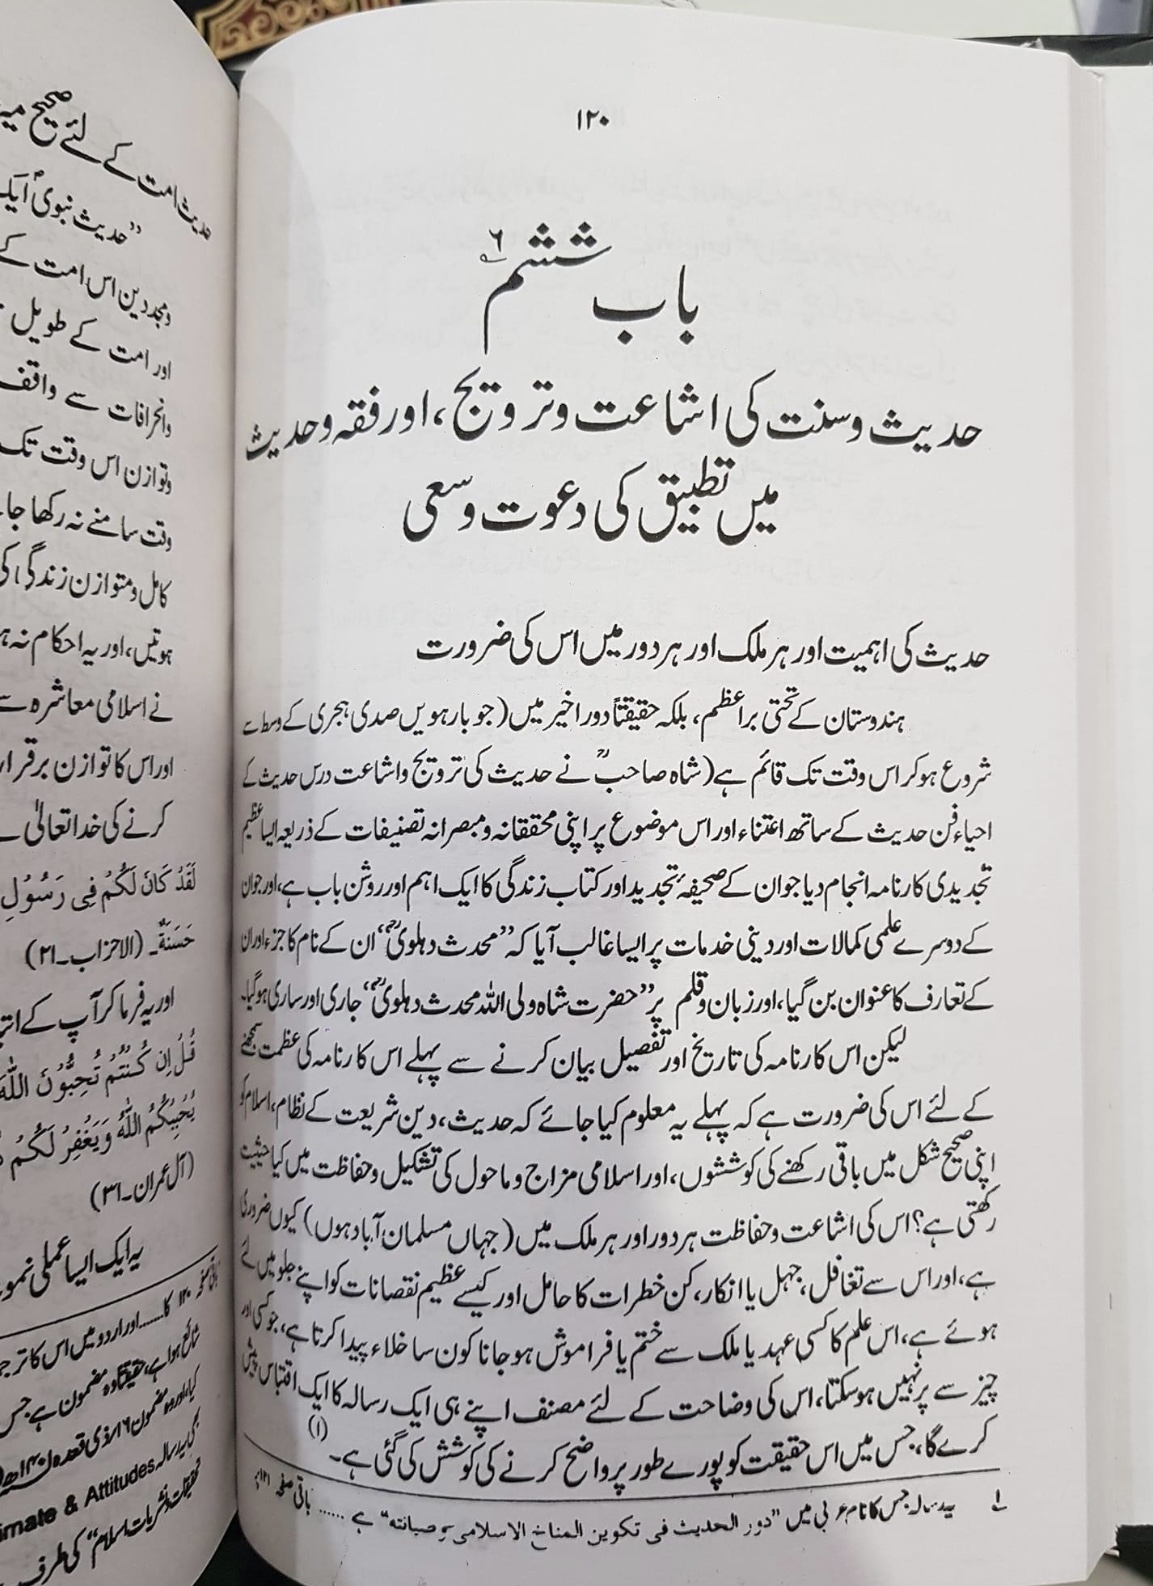 ۱۲۰
باب ششم ۶
حدیث و سنت کی اشاعت و ترویج، اور فقہ و حدیث
میں تطبیق کی دعوت و سعی
حدیث کی اہمیت اور ہر ملک اور ہر دور میں اس کی ضرورت
ہندوستان کے تحتی براعظم، بلکہ حقیقتاً دور اخیر میں (جو بارہویں صدی ہجری کے وسط سے
شروع ہوکر اس وقت تک قائم ہے) شاہ صاحبؒ نے حدیث کی ترویج و اشاعت درس حدیث کے
احیاء، فن حدیث کے ساتھ اعتناء اور اس موضوع پر اپنی محققانہ و مبصرانہ تصنیفات کے ذریعہ ایسا عظیم
تجدیدی کارنامہ انجام دیا جو ان کے صحیفۂ تجدید اور کتاب زندگی کا ایک اہم اور روشن باب ہے، اور جو ان
کے دوسرے علمی کمالات اور دینی خدمات پر ایسا غالب آیا کہ ”محدث دہلویؒ“ ان کے نام کا جزء اور ان
کے تعارف کا عنوان بن گیا، اور زبان و قلم پر ”حضرت شاہ ولی اللہ محدث دہلویؒ“ جاری اور ساری ہوگیا۔
لیکن اس کارنامہ کی تاریخ اور تفصیل بیان کرنے سے پہلے اس کارنامہ کی عظمت سمجھنے
کے لئے اس کی ضرورت ہے کہ پہلے یہ معلوم کیا جائے کہ حدیث، دین شریعت کے نظام، اسلام کو
اپنی صحیح شکل میں باقی رکھنے کی کوششوں، اور اسلامی مزاج و ماحول کی تشکیل و حفاظت میں کیا حیثیت
رکھتی ہے؟ اس کی اشاعت و حفاظت ہر دور اور ہر ملک میں (جہاں مسلمان آباد ہوں) کیوں ضروری
ہے، اور اس سے تغافل، جہل یا انکار، کن خطرات کا حامل اور کیسے عظیم نقصانات کو اپنے جلو میں لئے
ہوئے ہے، اس علم کا کسی عہد یا ملک سے ختم یا فراموش ہوجانا کون سا خلاء پیدا کرتا ہے، جو کسی اور
چیز سے پر نہیں ہوسکتا، اس کی وضاحت کے لئے مصنف اپنے ہی ایک رسالہ کا ایک اقتباس پیش
کرے گا، جس میں اس حقیقت کو پورے طور پر واضح کرنے کی کوشش کی گئی ہے۔ (۱)
۱ یہ رسالہ جس کا نام عربی میں ”دور الحدیث فی تکوین المناخ الاسلامی و صیانتہ“ ہے ...... باقی صفحہ ۱۲۱ پر
حدیث امت کے لئے صحیح
”حدیث نبویؐ ایک
ومجددین اس امت کے
اور امت کے طویل
وانحرافات سے واقف
وتوازن اس وقت تک
وقت سامنے نہ رکھا جا
کامل و متوازن زندگی کی
ہوتیں، اور یہ احکام نہ
نے اسلامی معاشرہ سے
اور اس کا توازن برقرار
کرنے کی خدا تعالیٰ
لَقَدْ كَانَ لَكُمْ فِى رَسُوْلِ
حَسَنَةٌ۔ (الاحزاب۔۲۱)
اور یہ فرما کر آپ کے
قُلْ اِنْ كُنْتُمْ تُحِبُّوْنَ اللّٰهَ
يُحْبِبْكُمُ اللّٰهُ وَيَغْفِرْ لَكُمْ
(آل عمران۔۳۱)
یہ ایک ایسا عملی
باقی صفحہ ۱۲۰ کا...... اور اردو میں اس کا
شائع ہوا ہے، حقیقتاً وہ مضمون ہے جس
Attitudes &
اسلام“ کی طرف